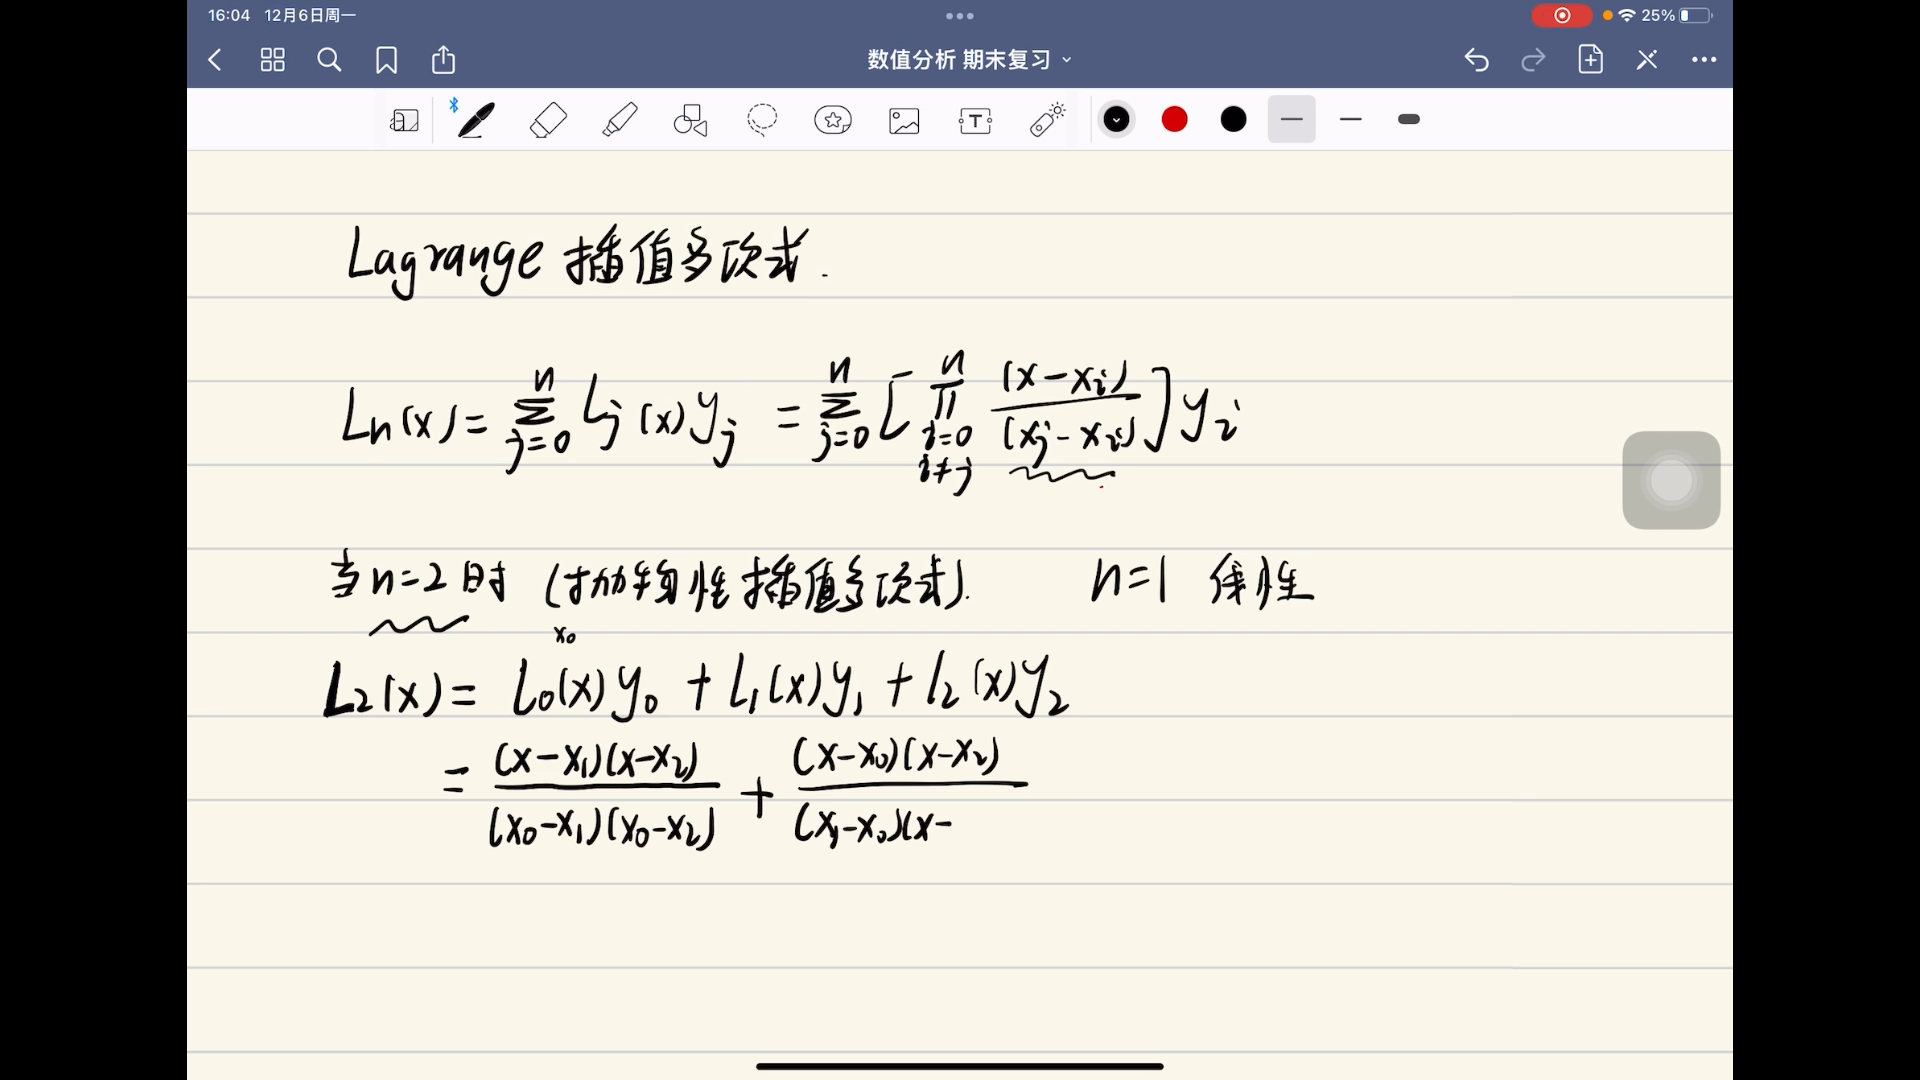 16:04 12月6日周一
25%
数值分析 期末复习
Lagrange 插值多项式.
Ln(x) = Σ_{j=0}^{n} lj(x) yj = Σ_{j=0}^{n} [ Π_{i=0, i≠j}^{n} (x-xi)/(xj-xi) ] yi
当n=2时 (抛物性插值多项式). n=1 线性
x₀
L₂(x) = l₀(x)y₀ + l₁(x)y₁ + l₂(x)y₂
= (x-x₁)(x-x₂)/(x₀-x₁)(x₀-x₂) + (x-x₀)(x-x₂)/(x₁-x₀)(x-